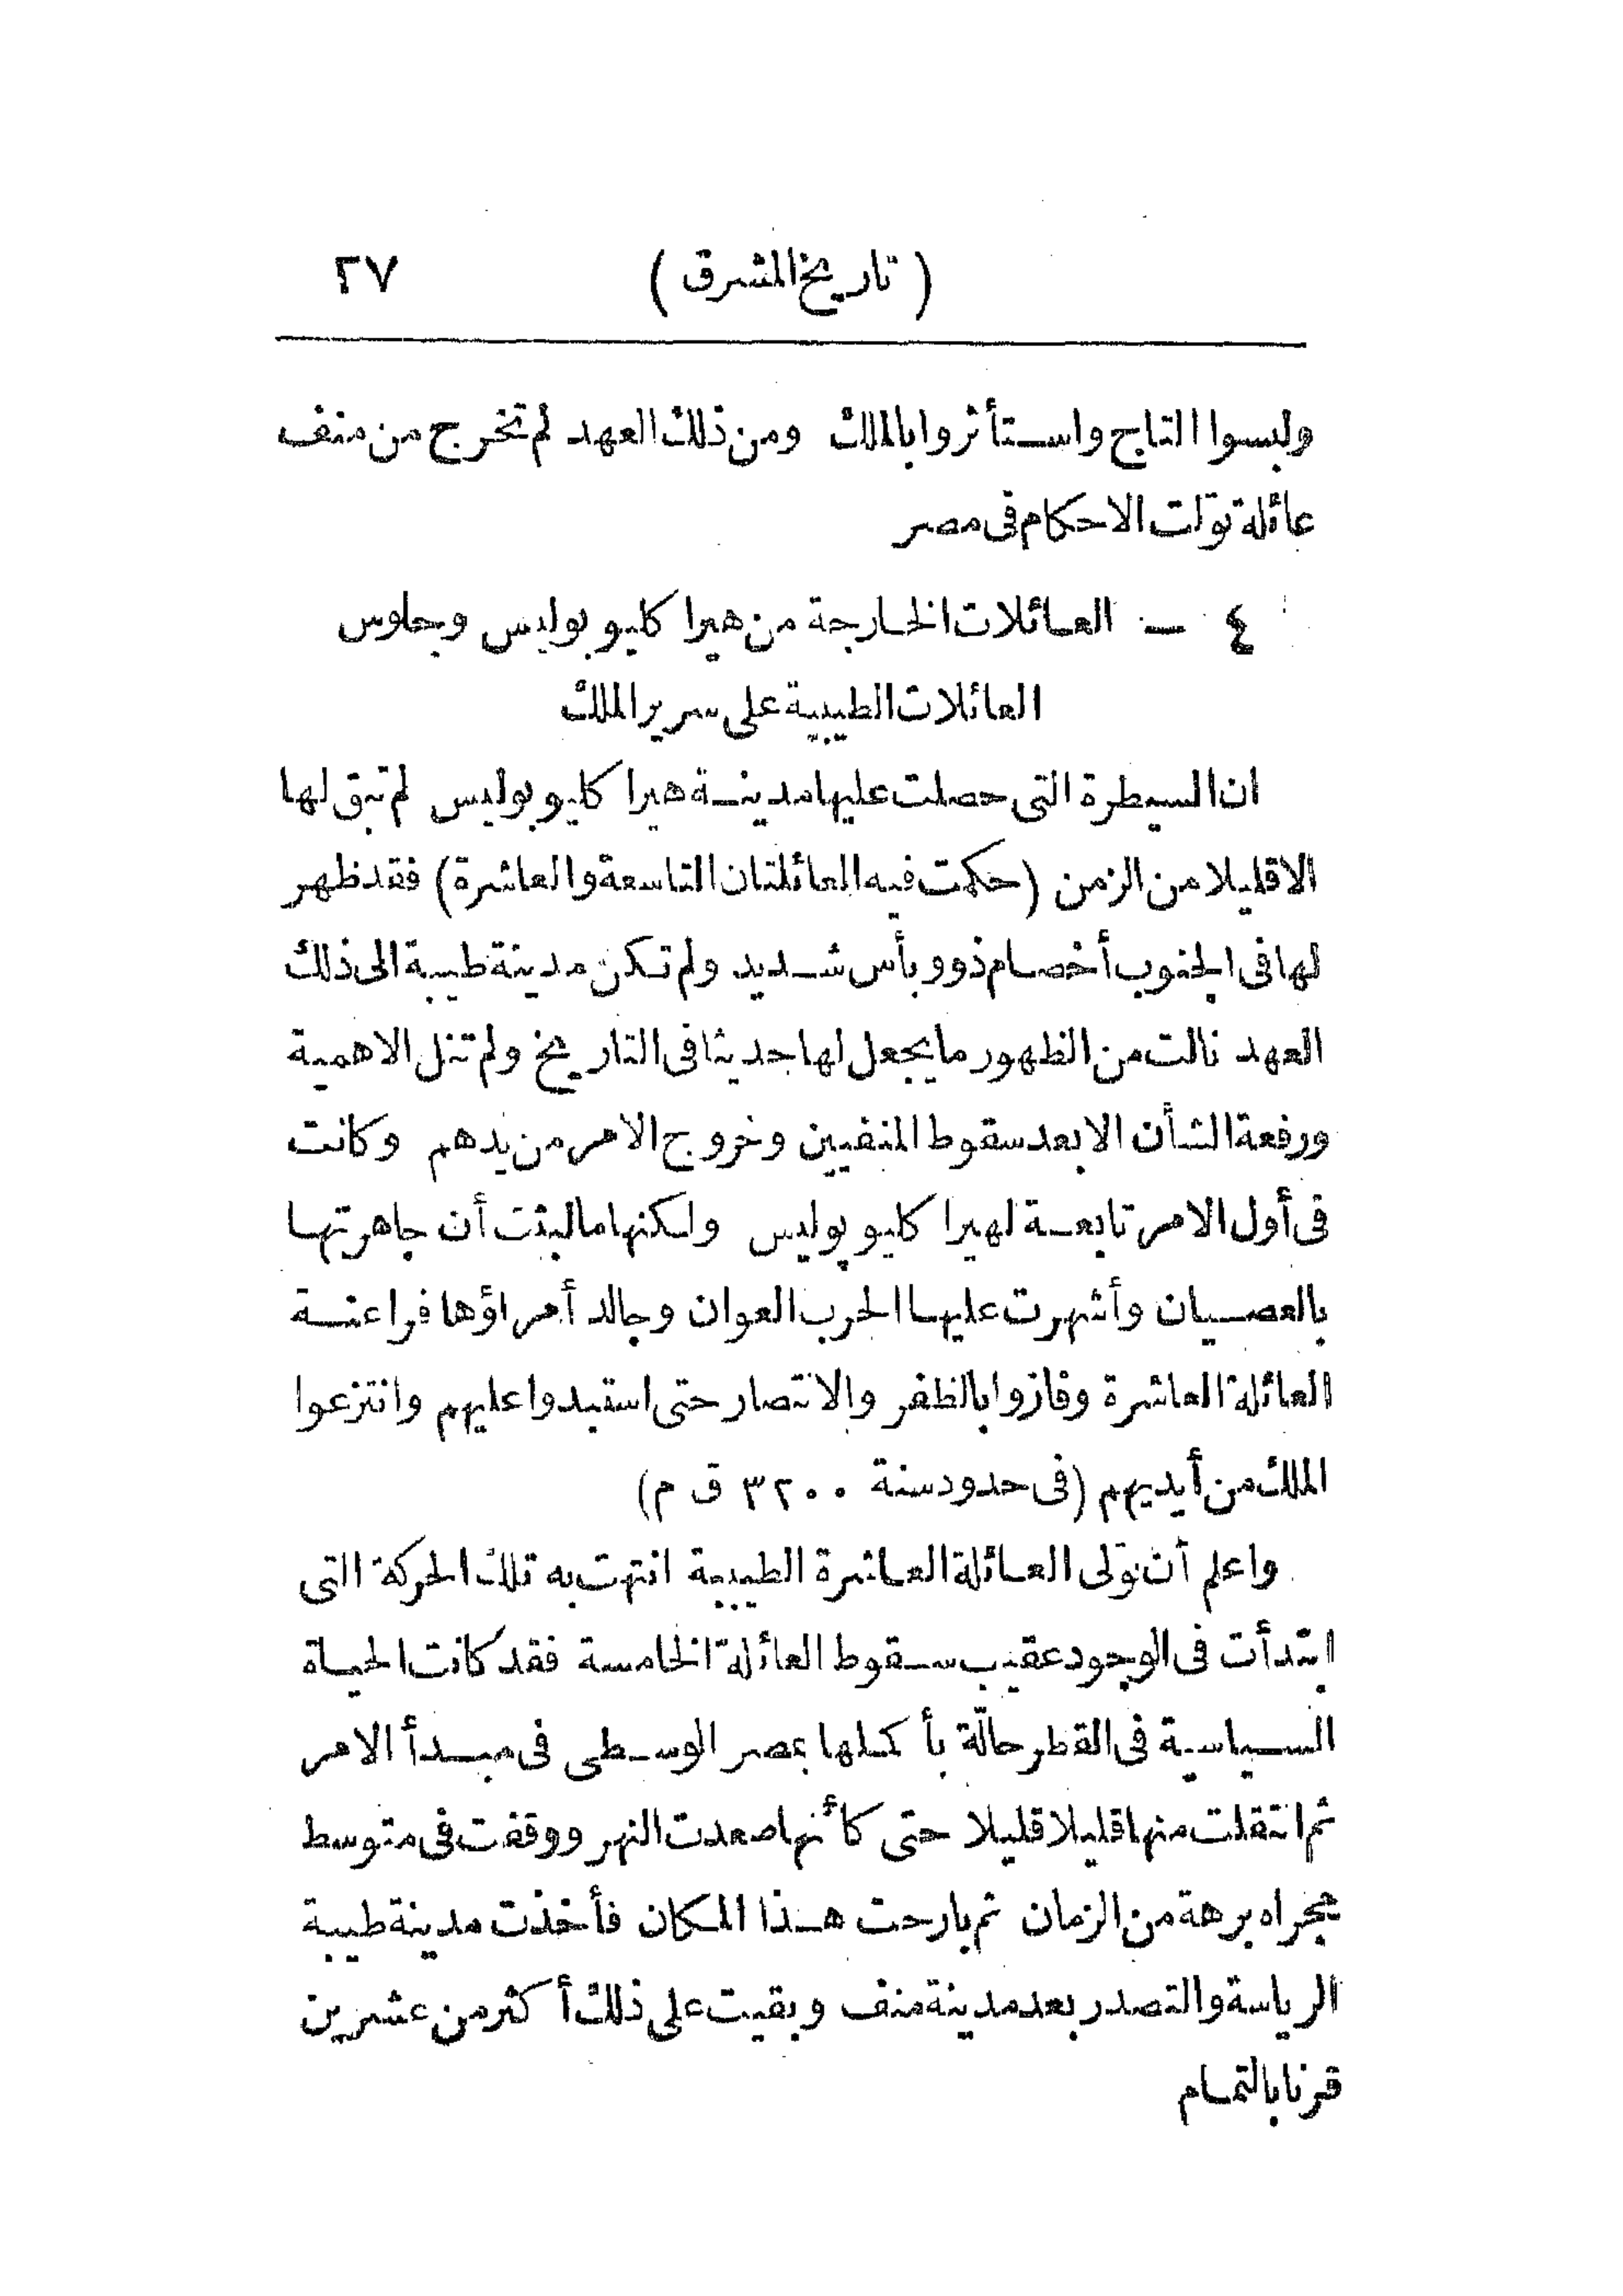 ( تاريخ المشرق ) ٢٧
ولبسوا التاج واستأثروا بالملك ومن ذلك العهد لم تخرج من منف
عائلة تولّت الاحكام فى مصر
٤ — العائلات الخارجة من هيرا كليو بوليس وجلوس
العائلات الطيبية على سرير الملك
ان السيطرة التى حصلت عليها مدينة هيرا كليو بوليس لم تبق لها
الا قليلا من الزمن (حكمت فيه العائلتان التاسعة والعاشرة) فقد ظهر
لها فى الجنوب أخصام ذوو بأس شديد ولم تكن مدينة طيبة الى ذلك
العهد نالت من الظهور ما يجعل لها حديثا فى التاريخ ولم تنل الاهمية
ورفعة الشأن الا بعد سقوط المنفيين وخروج الامر من يدهم وكانت
فى أول الامر تابعة لهيرا كليو پوليس ولكنها ما لبثت أن جاهرتها
بالعصيان وأشهرت عليها الحرب العوان وجالد أمراؤها فراعنة
العائلة العاشرة وفازوا بالظفر والانتصار حتى استبدوا عليهم وانتزعوا
الملك من أيديهم (فى حدود سنة ٣٢٠٠ ق م)
واعلم أن تولى العائلة العاشرة الطيبية انتهت به تلك الحركة التى
ابتدأت فى الوجود عقيب سقوط العائلة الخامسة فقد كانت الحياة
السياسية فى القطر حالّة بأكملها بمصر الوسطى فى مبدأ الامر
ثم انتقلت منها قليلا قليلا حتى كأنها صعدت النهر ووقفت فى متوسط
مجراه برهة من الزمان ثم بارحت هذا المكان فأخذت مدينة طيبة
الرياسة والتصدر بعد مدينة منف وبقيت على ذلك أكثر من عشرين
قرنا بالتمام